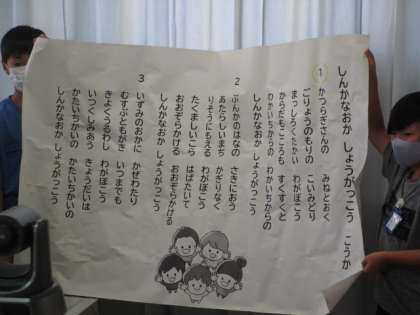 しんかなおか しょうがっこう こうか
1
かつらぎさんの みねとおく
ごりょうのもりの こいみどり
まっしろくたかい わがぼこう
からだもこころも すくすくと
わかいちからの わかいちからの
しんかなおか しょうがっこう
2
ぶんかのはなの さきにおう
あたらしいまち かぎりなく
りそうにもえる わがぼこう
たくましいこら はばたいて
おおぞらかける おおぞらかける
しんかなおか しょうがっこう
3
いずみのおかに かぜわたり
むすぶともがき いつまでも
きよくうるわし わがぼこう
いつくしみあう きょうだいは
かたいちかいの かたいちかいの
しんかなおか しょうがっこう